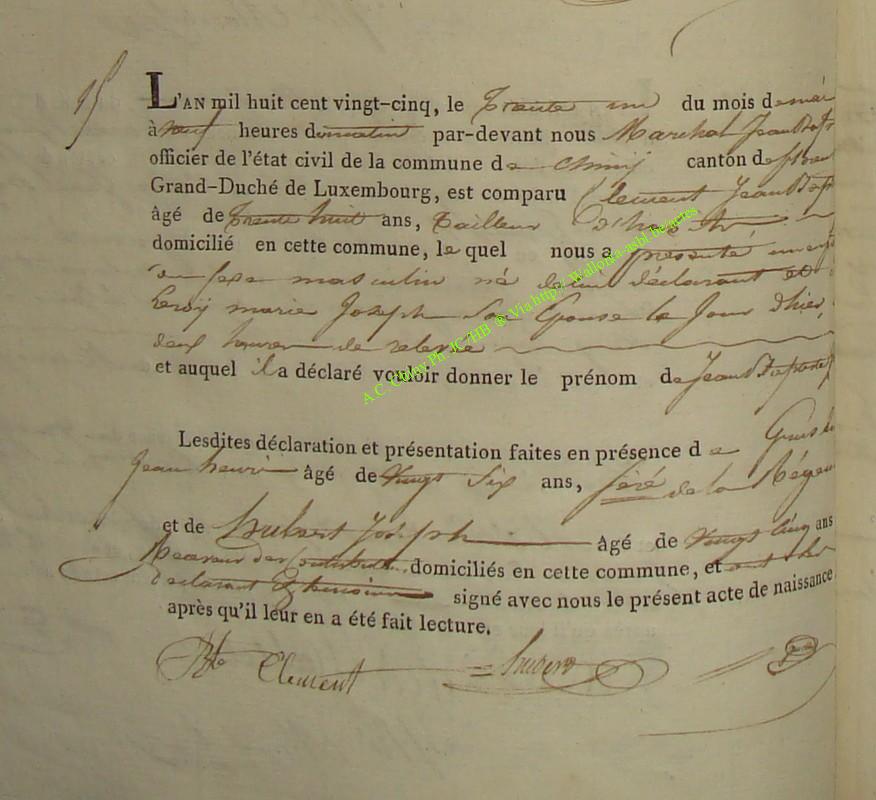 15
L'AN mil huit cent vingt-cinq, le trente un du mois de mai
à neuf heures du matin par-devant nous Marchal Jean Bapt
officier de l'état civil de la commune de Chiny canton de
Grand-Duché de Luxembourg, est comparu Clement Jean Bapt
âgé de trente huit ans, tailleur d'habits
domicilié en cette commune, lequel nous a présenté un enf
du sexe masculin né de lui déclarant et
Leroy marie Joseph son Epouse le Jour d'hier,
deux heures de relevée
et auquel il a déclaré vouloir donner le prénom de Jean Baptiste
Lesdites déclaration et présentation faites en présence de
Jean henri âgé de vingt six ans, de la Régen
et de hubert Joseph âgé de vingt cinq ans
Receveur des Contributions domiciliés en cette commune, et ont les
déclarant et temoins signé avec nous le présent acte de naissance
après qu'il leur en a été fait lecture.
Bte Clement hubert
A.C. Chiny Ph JC/HB ® Via http://Wallonia-asbl.be/actes